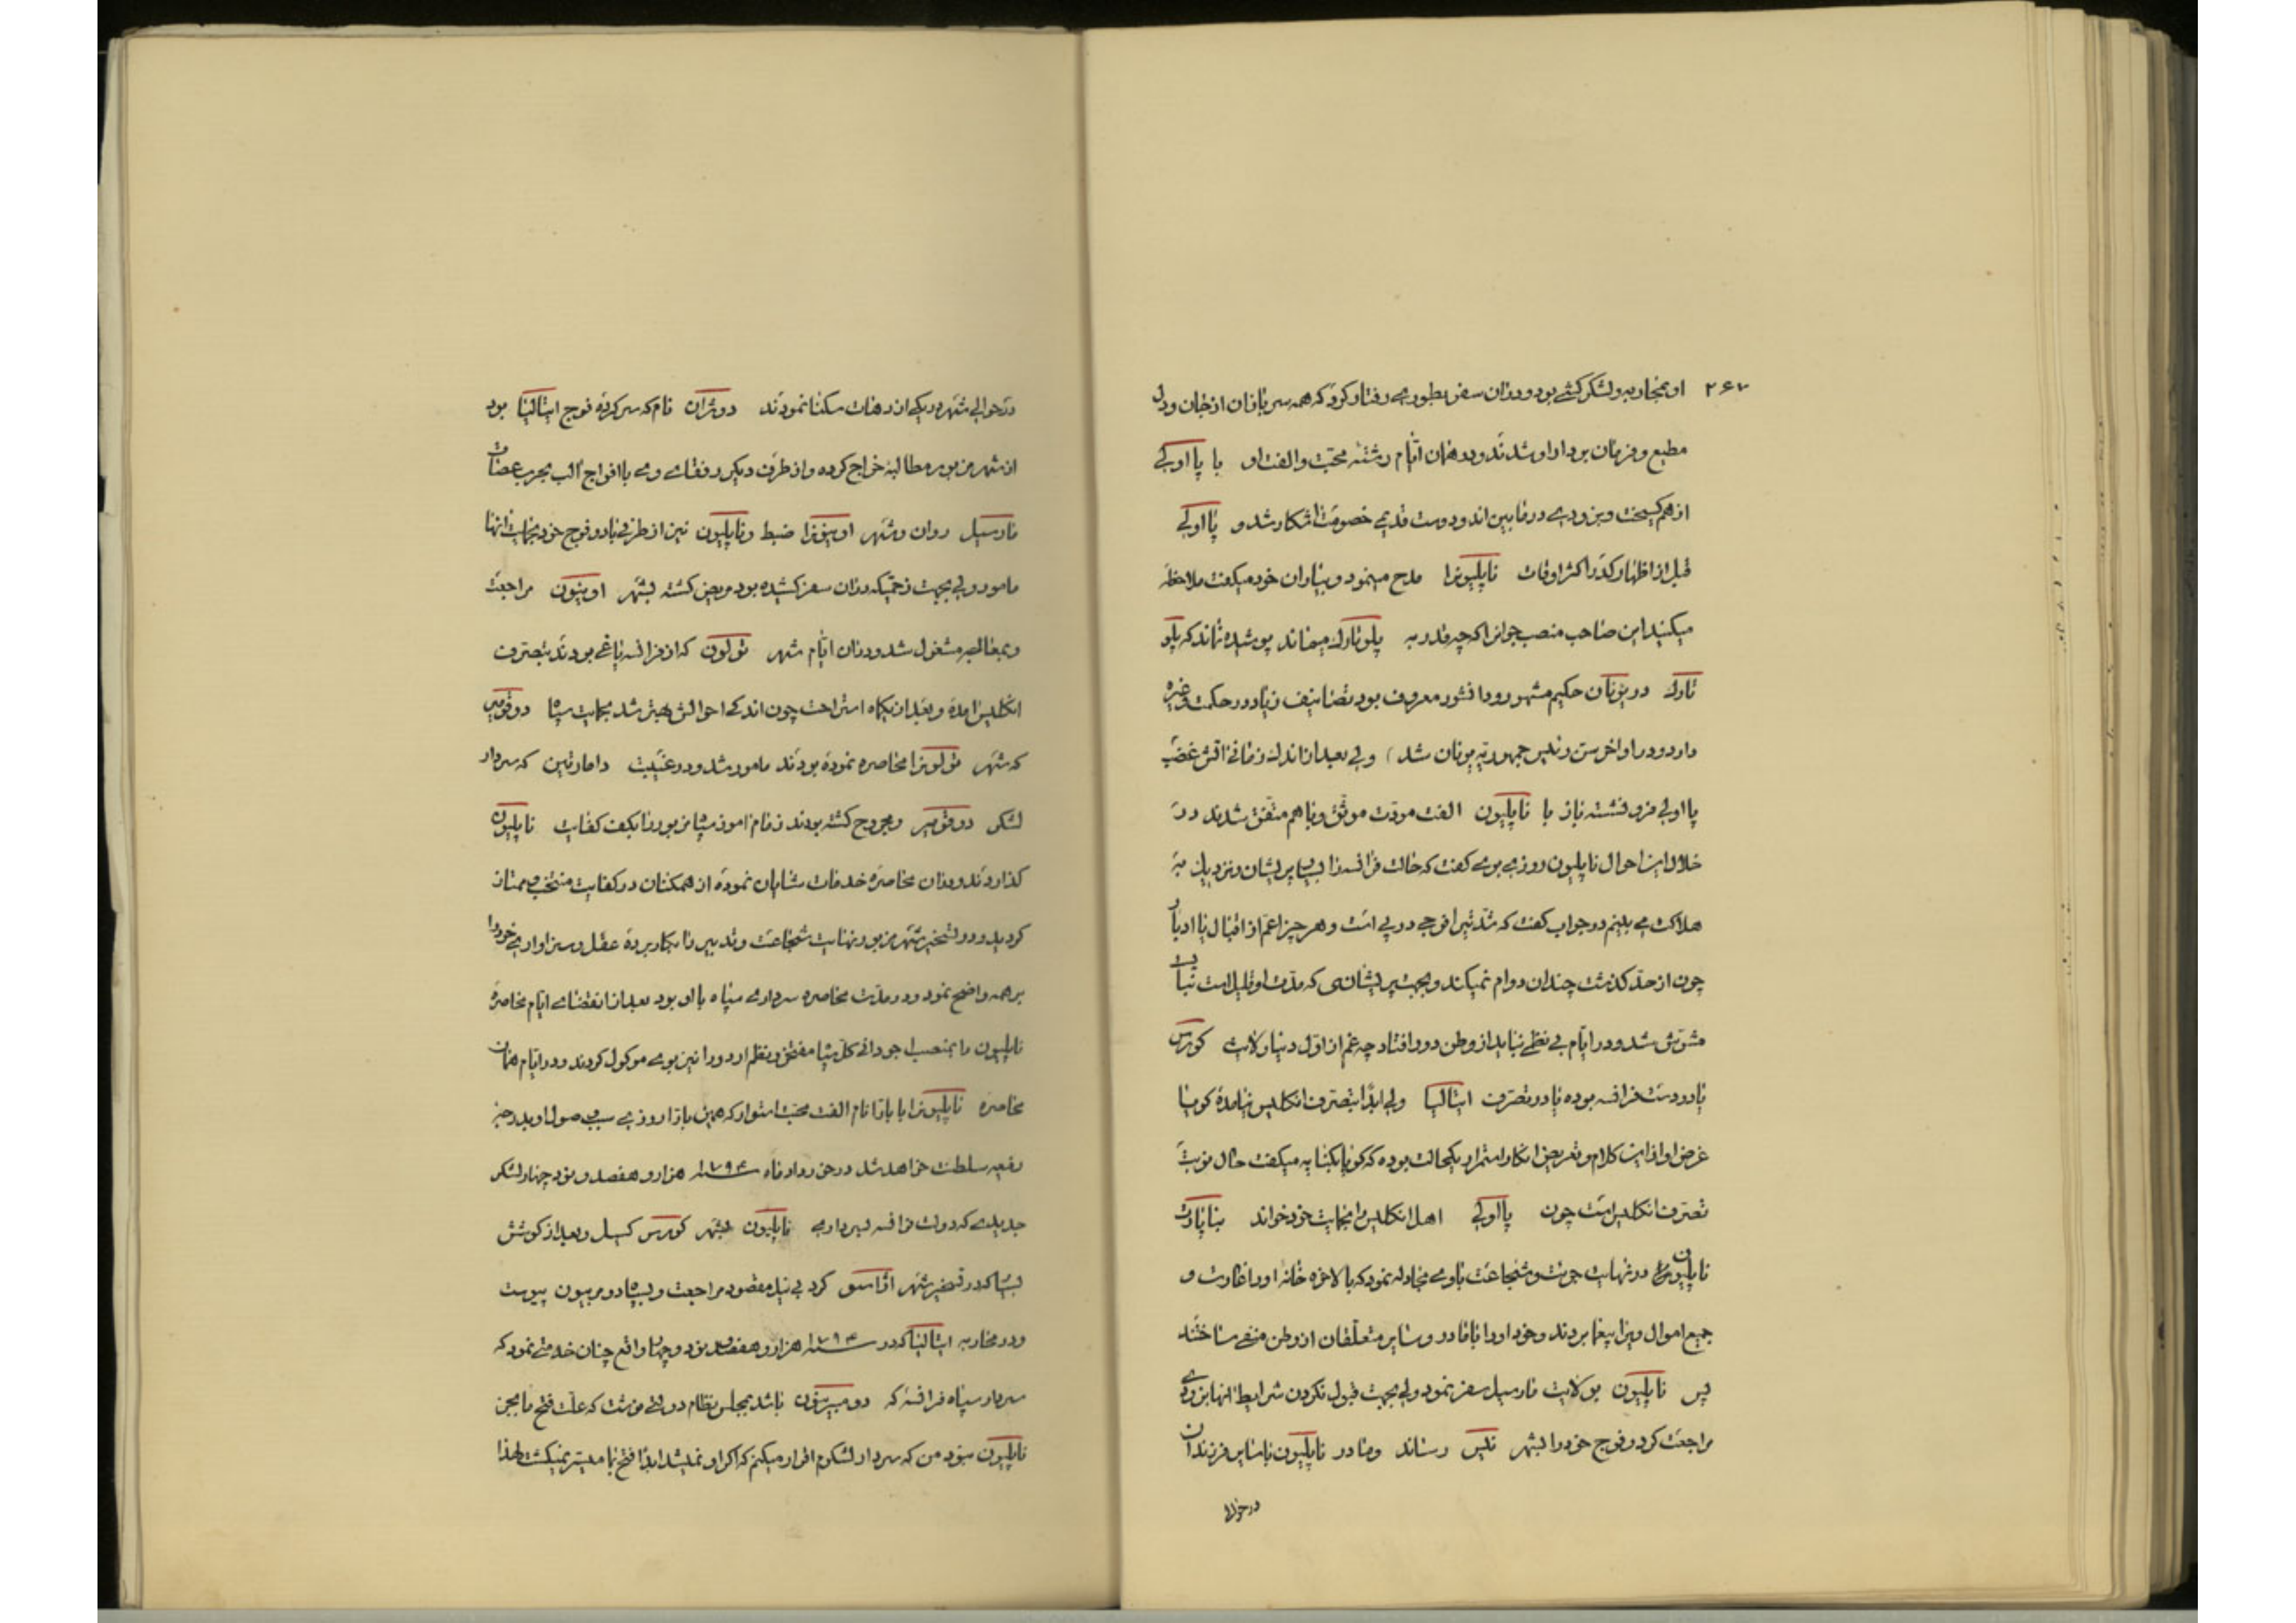 ۲۶۷ او بمحاربه و لشکر کشی بود و در آن سفر بطوری رفتار کرد که همه سربازان از جان و دل
مطیع و فرمان بردار او شدند و در همان ایام رشته محبت و الفت او با پااولی
از هم گسیخت و بزودی در مابین اندو دوست قدیمی خصومت آشکار شد و پااولی
قبل از اظهار کدر اکثر اوقات ناپلیونرا مدح مینمود و بیاران خود میکفت ملاحظه
میکنید این صاحب منصب جوانرا که چه قدر به پلوتارک میماند پوشیده نماند که پلو
تارک در یونان حکیم مشهور و دانشور معروف بود تصانیف زیاد در حکمت و غیره
دارد و در اواخر سن رئیس جمهوریه یونان شد) ولی بعد از اندک زمانی آتش غضب
پااولی فرو نشسته باز با ناپلیون الفت مودت موثق و با هم متفق شدند در
خلال این احوال ناپلیون روزی بوی کفت که حالت فرانسه را بسیار پریشان و نزدیک به
هلاکت می بینم در جواب کفت که تدبیر فوجی در پی است و هر چیز اعم از اقبال یا ادبار
چون از حد گذشت چندان دوام نمیکند و بجهت پریشانی که مدت او قلیل است نباید
مشوش شد و در ایام بی نظمی نباید از وطن دور افتاد چه غم از اول دنیا ولایت کورس
یا در دست فرانسه بوده یا در تصرف ایتالیا ولی ابدا بتصرف انکلیس نیامده کویا
غرض او از این کلام و تعریض انکار استمرار یکحالت بوده که کویا بکنایه میکفت حال نوبت
تصرف انکلیس است چون پااولی اهل انکلیس را بحمایت خود خواند بناپارت
ناپلیون در نهایت جرئت و شجاعت با وی مجادله نمود که بالاخره خانهٔ او را غارت و
جمیع اموال ویرا بیغما بردند و خود او را با مادر و سایر متعلقان از وطن منفی ساختند
پس ناپلیون بولایت مارسیل سفر نمود ولی بجهت قبول نکردن شرایط آنها بزودی
مراجعت کرد و فوج خود را بشهر نیس رساند و مادر ناپلیون با سایر فرزندان
در حوالی
در حوالی شهر در یکی از دهات سکنا نمودند دوشران نام که سرکرده فوج ایتالیا بود
از شهر مزبور مطالبه خراج کرده و از طرف دیکر رفقای وی با افواج آلب بحرب عصات
مارسیل روان و شهر اوینونرا ضبط و ناپلیون نیز از طرفی با دو فوج خود بحمایت آنها
مامور ولی بجهت زحمتیکه در آن سفر کشیده بود مریض کشته بشهر اوینون مراجعت
و بمعالجه مشغول شد و در آن ایام شهر تولون که از فرانسه یاغی بودند بتصرف
انکلیس آمده و بعد از یکماه استراحت چون اندکی احوالش بهتر شد بحمایت سپاه دوقومیر
که شهر تولونرا محاصره نموده بودند مامور شد و در غیبت دامارتین که سردار
لشکر دوقومیر و مجروح کشته بودند زمام امور سپاه مزبور را بکف کفایت ناپلیون
گذاردند و در آن محاصره خدمات شایان نموده از همکنان در کفایت منتخب و ممتاز
کردید و در تسخیر شهر مزبور نهایت شجاعت و تدبیر را بکار برده عقل و سزاواری خود را
بر همه واضح نمود و در مدت محاصره سرداری سپاه با او بود بعد از انقضای ایام محاصره
ناپلیون را بمنصب جودانی کل سپاه مفتخر و نظم اردو را نیز بوی موکول کردند و در ایام همان
محاصره ناپلیونرا با بارانام الفت و محبت استوار که همین بارا روزی سبب وصول او بدرجه
رفیعه سلطنت خواهد شد در خرداد ماه سنه ۱۷۹۴ هزار و هفصد و نود چهار لشکر
جدیدی که دولت فرانسه بسرداری ناپلیون بشهر کورس کسیل و بعد از کوشش
بسیار که در تسخیر شهر اژاسو کرد بی نیل مقصود مراجعت و بسپاه دومربیون پیوست
و در محاربه ایتالیا که در سنه ۱۷۹۴ هزار و هفصد نود و چهار واقع چنان خدمتی نمود که
سردار سپاه فرانسه که دومبریون باشد بمجلس نظام دولتی نوشت که علت فتح ما بجز
ناپلیون نبود من که سردار لشکرم اقرار میکنم که اکر او نمیشد ابدا فتح بما میسر نمیکشت لهذا